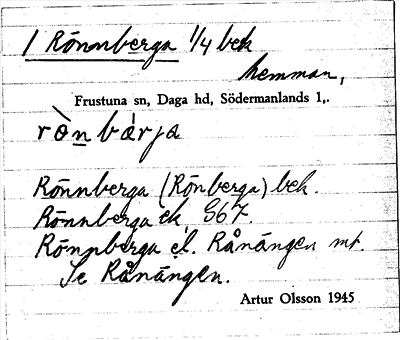 1 Rönnberga 1/4 bek
hemman,
Frustuna sn, Daga hd, Södermanlands l,.
rò̱n bárja
Rönnberga (Rönberga) bek.
Rönnberga ek G67.
Rönnberga el. Rånängen mt.
Se Rånängen.
Artur Olsson 1945